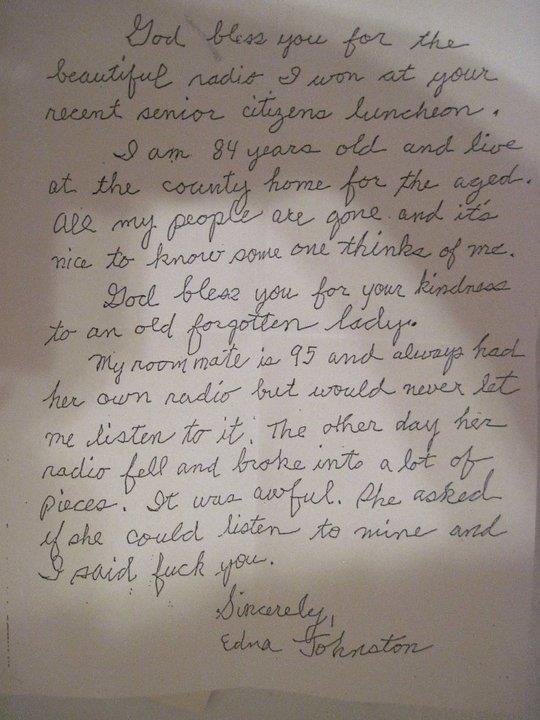 God bless you for the
beautiful radio I won at your
recent senior citizens luncheon.
I am 84 years old and live
at the county home for the aged.
All my people are gone and it's
nice to know some one thinks of me.
God bless you for your kindness
to an old forgotten lady.
My roommate is 95 and always had
her own radio but would never let
me listen to it. The other day her
radio fell and broke into a lot of
pieces. It was awful. She asked
if she could listen to mine and
I said fuck you.
Sincerely,
Edna Johnston